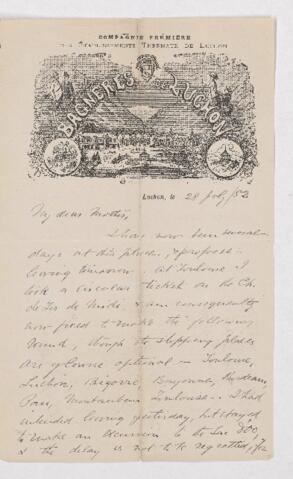 COMPAGNIE FERMIÈRE
DES ÉTABLISSEMENTS THERMAUX DE LUCHON
BAGNÈRES DE LUCHON
Luchon, le 28 July /82
My dear Mother,
I have now been several
days at this place, & propose
leaving tomorrow. At Toulouse I
took a circular ticket on the Ch.
de Fer du Midi & am consequently
now fixed to make the following
round, though the stopping places
are of course optional — Toulouse,
Luchon, Bigorre, Bayonne, Bordeaux,
Pau, Montauban Toulouse. I had
intended leaving yesterday, but stayed
to make an excursion to the Lac d'Oo,
& the delay is not to be regretted, for